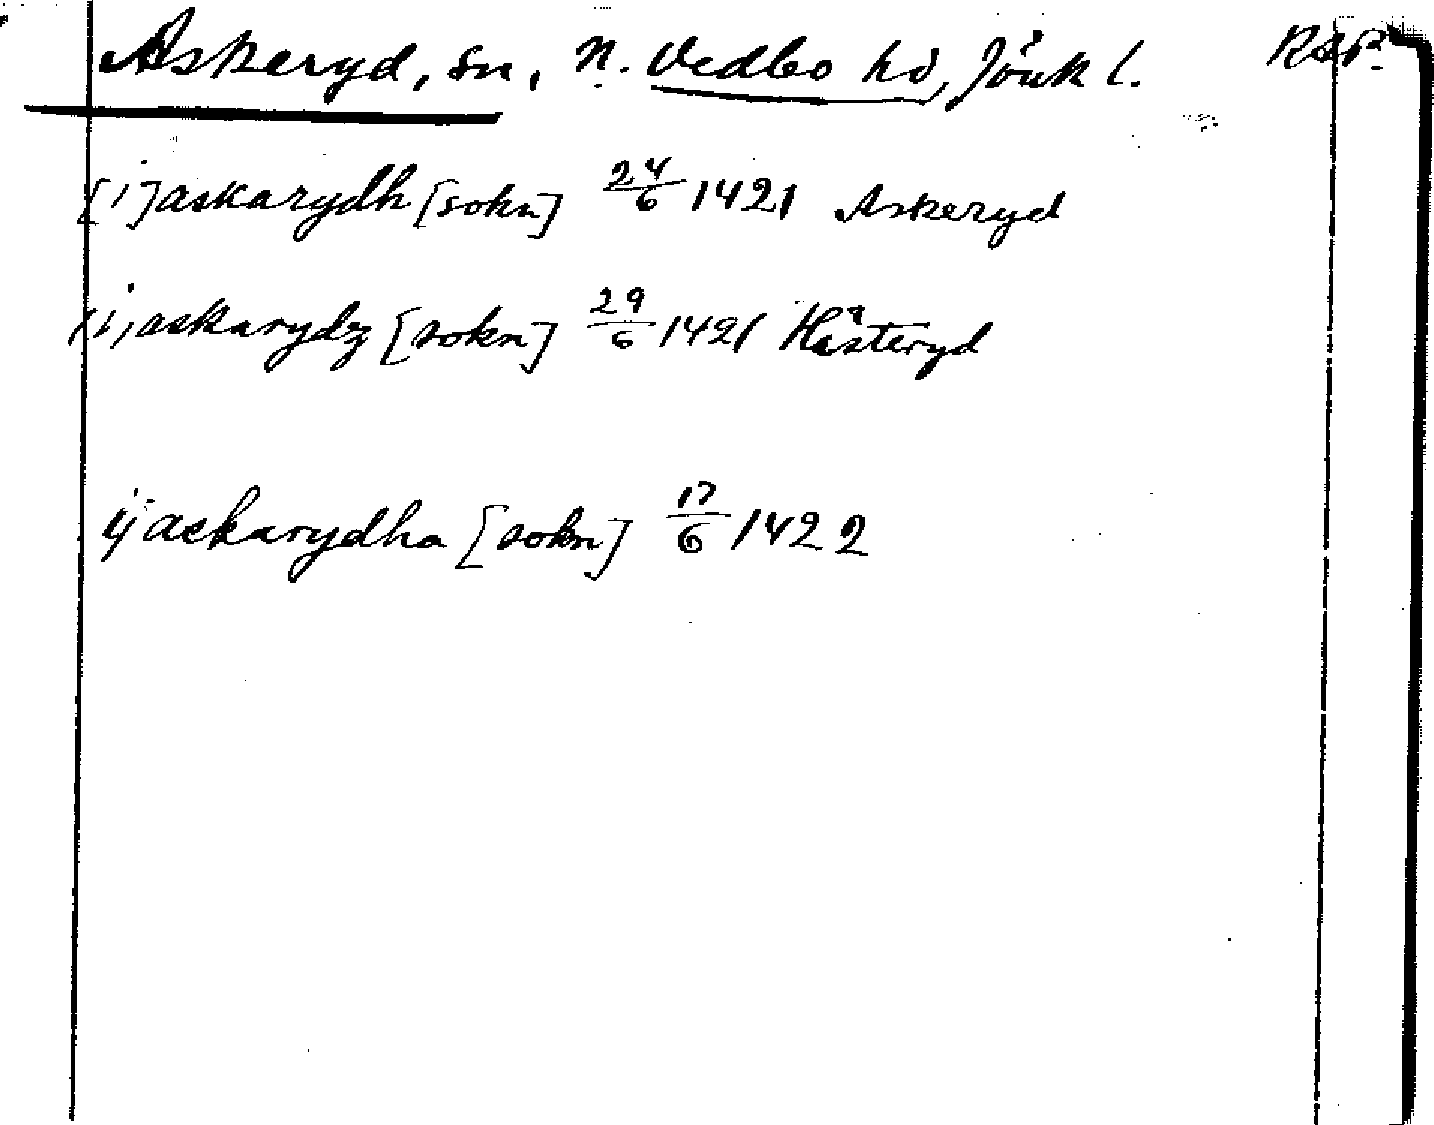 Askeryd, sn, N. Vedbo hd, Jönk l. RAP.
[i] askarydh [sokn] 24/6 1421 Askeryd
(i) askarydz [sokn] 29/6 1421 Hästeryd
ij askarydha [sokn] 17/6 1422